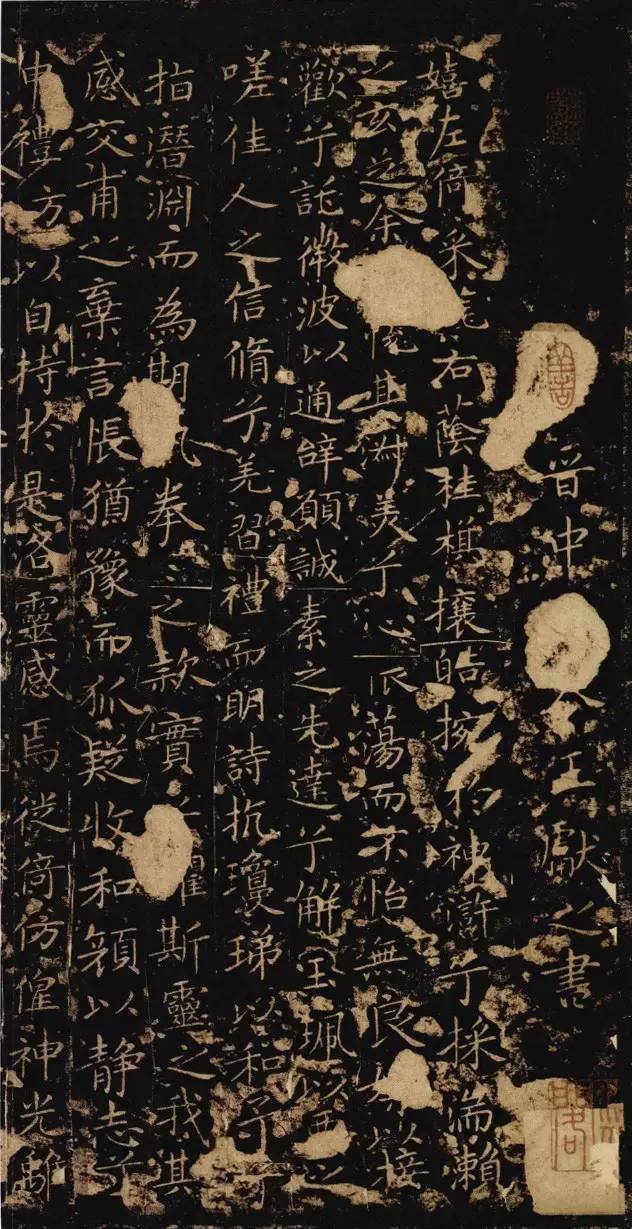 晋中令王獻之書
嬉左倚采旄右蔭桂旗攘皓捥於神滸兮採湍瀨
之玄芝余悅其淑美兮心振蕩而不怡無良媒以接
歡兮託微波以通辞願誠素之先達兮解玉珮以要之
嗟佳人之信脩兮羌習禮而明詩抗瓊珶以和予兮
指潛淵而為期執拳〻之款實兮懼斯靈之我其
感交甫之棄言悵猶豫而狐疑收和顏以静志兮
申禮方以自持於是洛靈感焉徙倚仿偟神光離